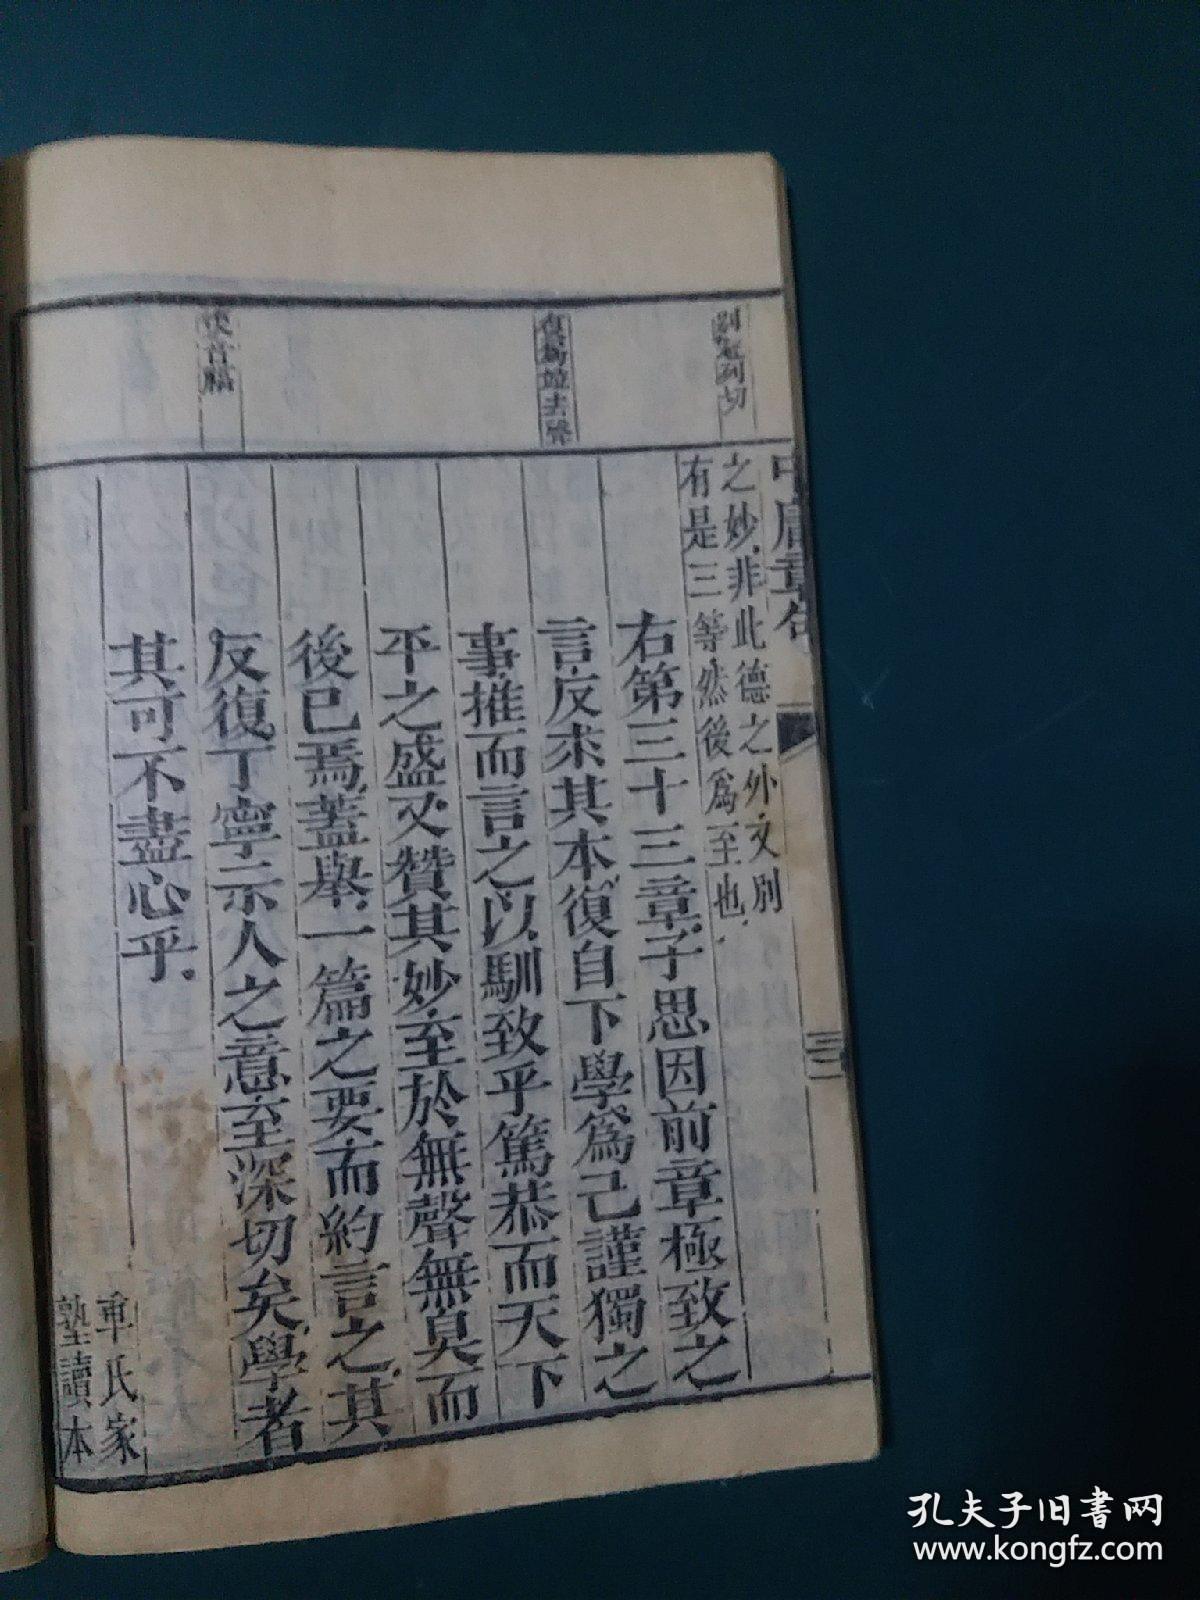 中庸章句
之妙非此德之外又別
有是三等然後爲至也
右第三十三章子思因前章極致之
言反求其本復自下學爲己謹獨之
事推而言之以馴致乎篤恭而天下
平之盛又贊其妙至於無聲無臭而
後已焉蓋舉一篇之要而約言之其
反復丁寧示人之意至深切矣學者
其可不盡心乎
氏家
塾讀本
去聲
孔夫子旧书网
www.kongfz.com